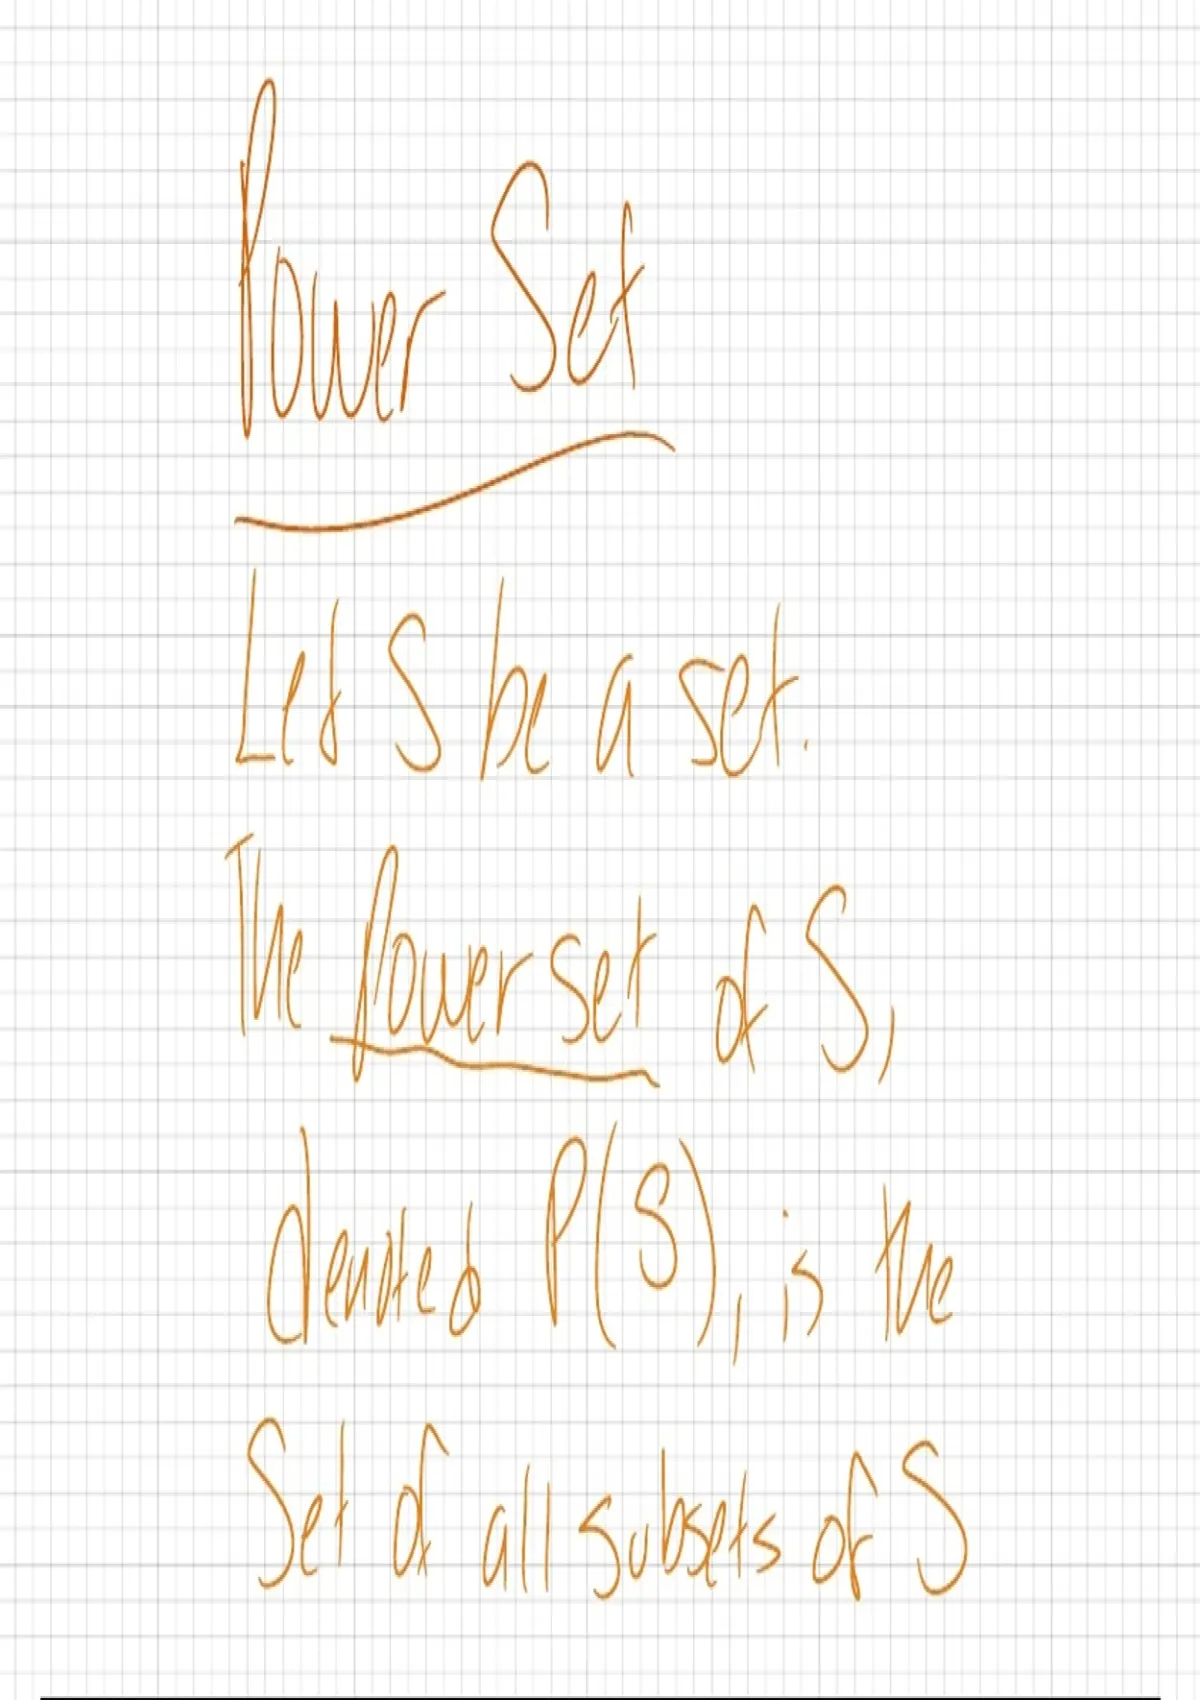 Power Set
Let S be a set.
The power set of S,
denoted P(S), is the
Set of all subsets of S